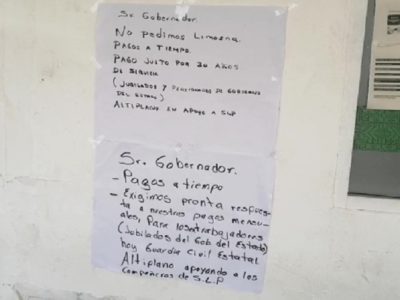 Sr. Gobernador.
No pedimos Limosna.
PAGOS A TIEMPO.
PAGO JUSTO POR 30 AÑOS
DE SERVICIO
(JUBILADOS Y PENSIONADOS DE GOBIERNO
DEL ESTADO)
ALTIPLANO EN APOYO A SLP
Sr. Gobernador.
- Pagos a tiempo
- Exigimos pronta respues-
ta a nuestros pagos mensu-
ales, Para los trabajadores
(Jubilados del Gob del Estado)
hoy Guardia Civil Estatal
Altiplano apoyando a los
Compañeros de S.L.P